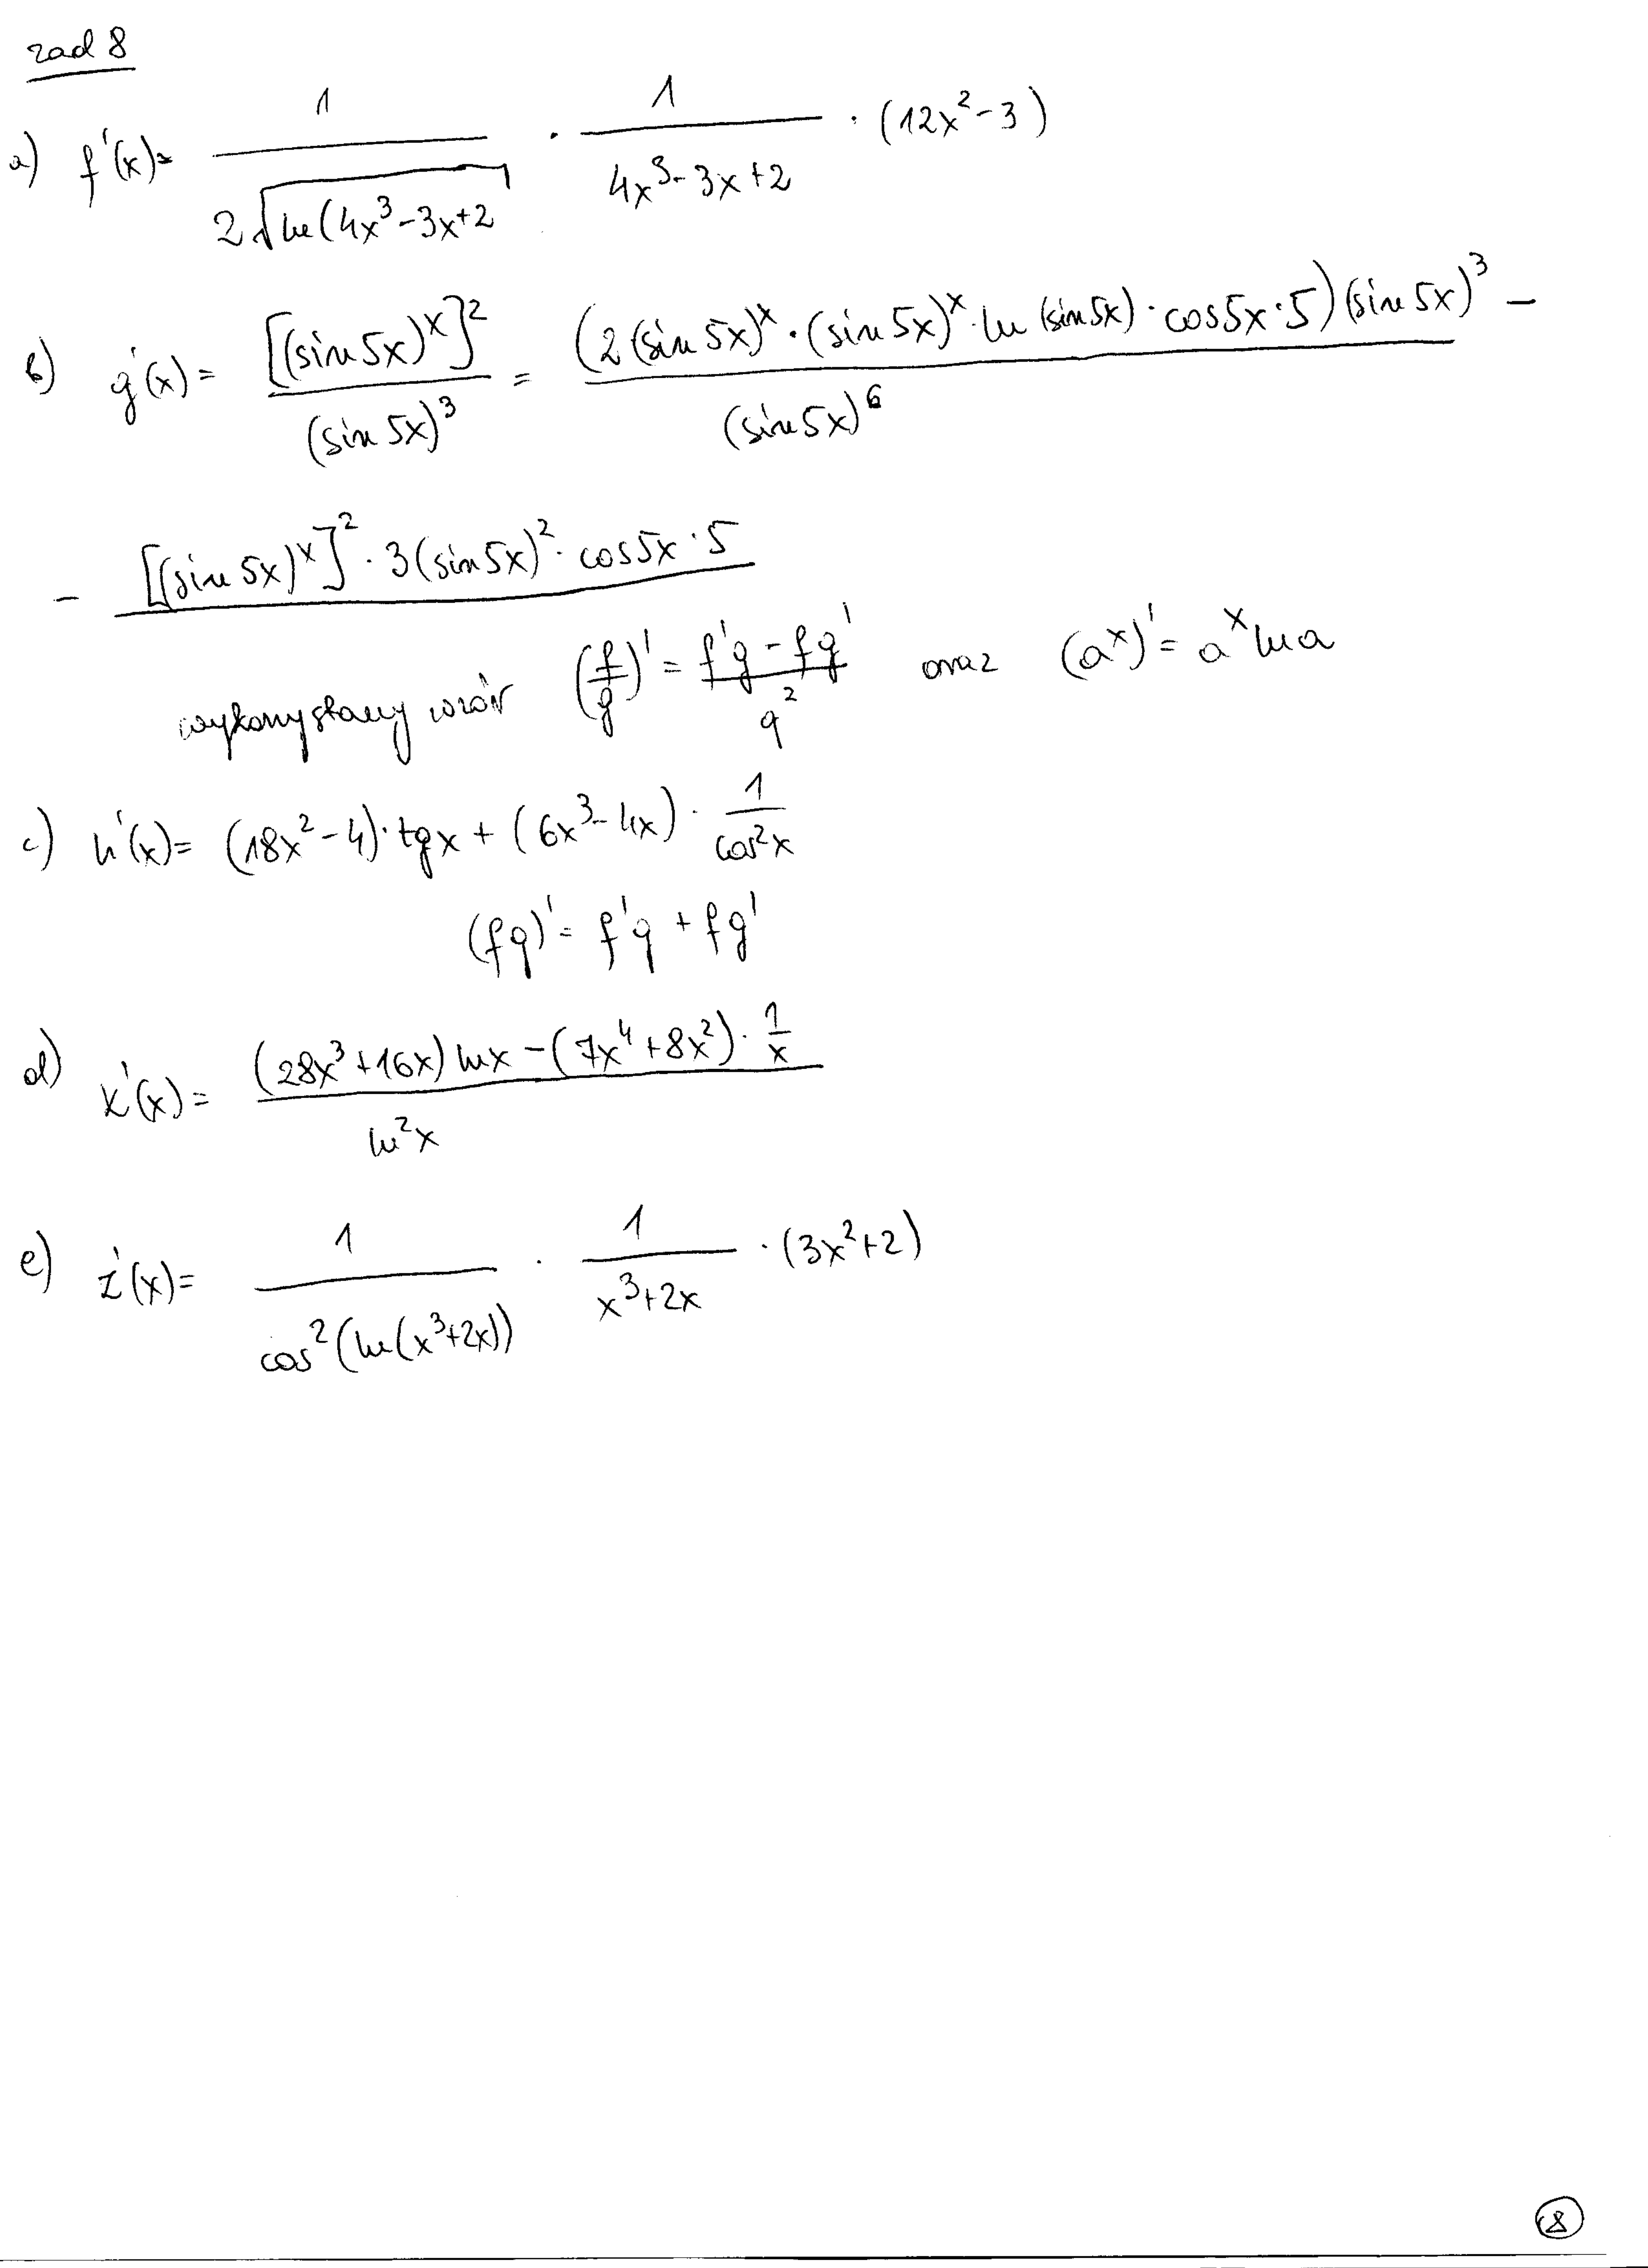 zad 8
a) f'(x) = 1/(2√(ln(4x³-3x+2)) · 1/(4x³-3x+2) · (12x²-3)
b) g'(x) = [(sin5x)^x]²/(sin5x)³ = (2(sin5x)^x · (sin5x)^x · ln(sin5x) · cos5x · 5)(sin5x)³ - / (sin5x)⁶
- [(sin5x)^x]² · 3(sin5x)² · cos5x · 5
wykorzystany wzór (f/g)' = (f'g - fg')/g² oraz (a^x)' = a^x ln a
c) h'(x) = (18x²-4) · tgx + (6x³-4x) · 1/cos²x
(fg)' = f'g + fg'
d) k'(x) = ((28x³+16x) lnx - (7x⁴+8x²) · 1/x)/ln²x
e) z'(x) = 1/cos²(ln(x³+2x)) · 1/(x³+2x) · (3x²+2)
8